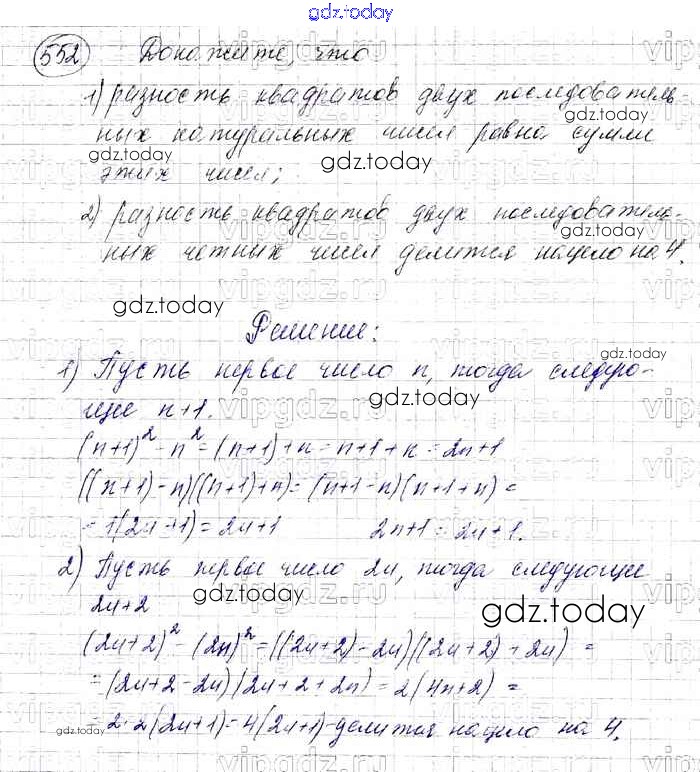 gdz.today
552 Докажите, что
1) разность квадратов двух последователь-
ных натуральных чисел равна сумме
gdz.today gdz.today
этих чисел;
2) разность квадратов двух последователь-
ных четных чисел делится нацело на 4.
gdz.today
Решение:
gdz.today
1) Пусть первое число n, тогда следую-
gdz.today
щее n+1.
(n+1)² - n² = (n+1)+n = n+1+n = 2n+1
((n+1)-n)((n+1)+n) = (n+1-n)(n+1+n) =
= 1(2n+1) = 2n+1 2n+1 = 2n+1.
2) Пусть первое число 2n, тогда следующее
gdz.today gdz.today
2n+2
(2n+2)² - (2n)² = ((2n+2)-2n)((2n+2)+2n) =
= (2n+2-2n)(2n+2+2n) = 2(4n+2) =
= 2·2(2n+1) = 4(2n+1) - делится нацело на 4.
gdz.today